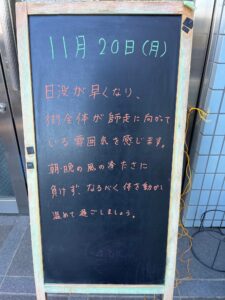 11月20日(月)
日没が早くなり、
街全体が師走に向かって
いる雰囲気を感じます。
朝・晩の風の冷たさに
負けず、なるべく体を動かし
温めて過ごしましょう。